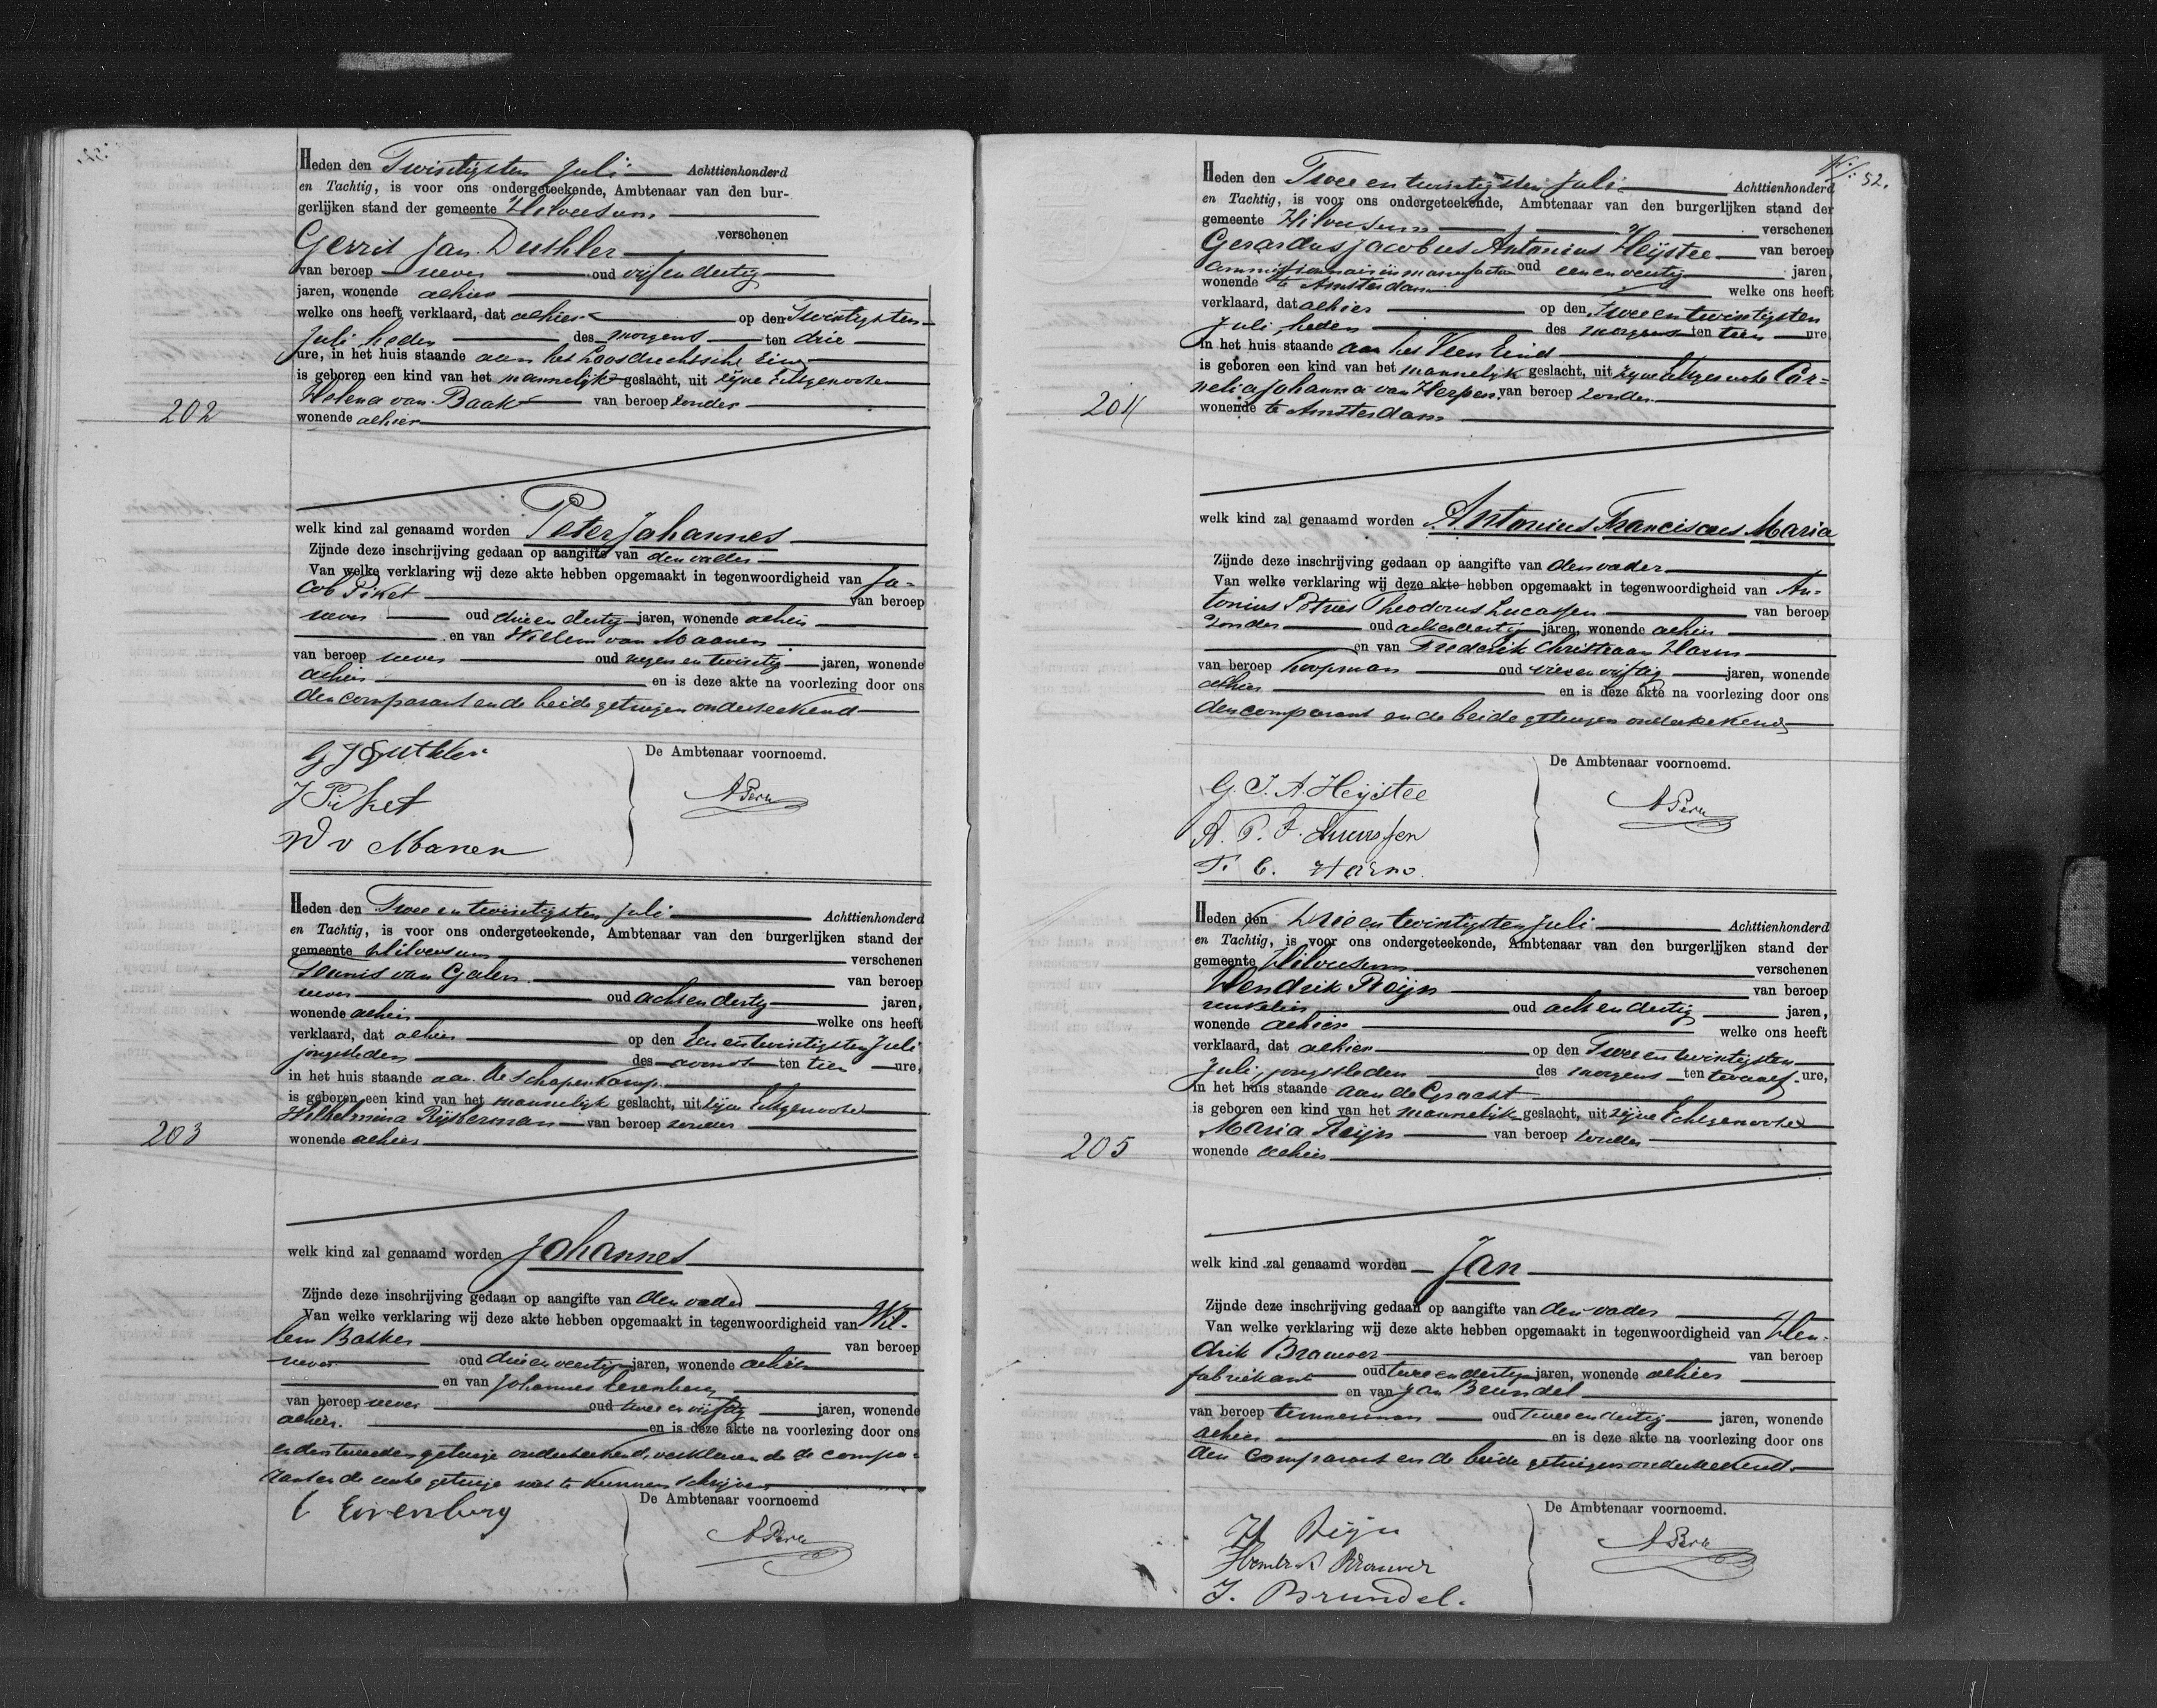 Heden den Twintigsten Juli Achttienhonderd
en Tachtig, is voor ons ondergeteekende, Ambtenaar van den bur-
gerlijken stand der gemeente Hilversum
verschenen
Gerrit Jan Duthler
van beroep wever oud vijf en dertig
jaren, wonende alhier
welke ons heeft verklaard, dat alhier op den Twintigsten
Juli heden des morgens ten drie
ure, in het huis staande aan het Loosdrechtsche Eind
is geboren een kind van het mannelijk geslacht, uit zijne Echtgenoote
Helena van Baak van beroep zonder
202
wonende alhier
welk kind zal genaamd worden Peter Johannes
Zijnde deze inschrijving gedaan op aangifte van den vader
Van welke verklaring wij deze akte hebben opgemaakt in tegenwoordigheid van Ja-
cob Piket van beroep
wever oud drie en dertig jaren, wonende alhier
en van Willem van Maanen
van beroep wever oud negen en twintig jaren, wonende
alhier en is deze akte na voorlezing door ons
den comparant en de beide getuigen onderteekend
De Ambtenaar voornoemd.
G J Duthler
J Piket
A Perk
W v Manen
Heden den Twee en twintigsten Juli Achttienhonderd
en Tachtig, is voor ons ondergeteekende, Ambtenaar van den burgerlijken stand der
gemeente Hilversum verschenen
Teunis van Galen van beroep
wever oud acht en dertig jaren,
wonende alhier welke ons heeft
verklaard, dat alhier op den Een en twintigsten Juli
jongstleden des avonds ten tien ure,
in het huis staande aan de Schapenkamp
is geboren een kind van het mannelijk geslacht, uit zijne Echtgenoote
Wilhelmina Rijsberman van beroep zonder
203
wonende alhier
welk kind zal genaamd worden Johannes
Zijnde deze inschrijving gedaan op aangifte van den vader
Van welke verklaring wij deze akte hebben opgemaakt in tegenwoordigheid van Wil-
lem Bakker van beroep
wever oud drie en veertig jaren, wonende alhier
en van Johannes Eerenberg
van beroep wever oud twee en vijftig jaren, wonende
alhier en is deze akte na voorlezing door ons
en den tweeden getuige onderteekend, verklarende de compa-
rant en de eerste getuige niet te kunnen schrijven
De Ambtenaar voornoemd
Eirenburg
A Perk
52.
Heden den Twee en twintigsten Juli Achttienhonderd
en Tachtig, is voor ons ondergeteekende, Ambtenaar van den burgerlijken stand der
gemeente Hilversum verschenen
Gerardus Jacobus Antonius Heijstee van beroep
Commissionair in manufacturen oud een en veertig jaren,
wonende te Amsterdam welke ons heeft
verklaard, dat alhier op den Twee en twintigsten
Juli heden des morgens ten tien ure
in het huis staande aan het Veen Eind
is geboren een kind van het mannelijk geslacht, uit zijne Echtgenoote Cor=
nelia Johanna van Herpen van beroep zonder
204
wonende te Amsterdam
welk kind zal genaamd worden Antonius Franciscus Maria
Zijnde deze inschrijving gedaan op aangifte van den vader
Van welke verklaring wij deze akte hebben opgemaakt in tegenwoordigheid van An-
tonius Petrus Theodorus Lucassen van beroep
zonder oud acht en dertig jaren, wonende alhier
en van Frederik Christiaan Harms
van beroep koopman oud vier en vijftig jaren, wonende
alhier en is deze akte na voorlezing door ons
den comparant en de beide getuigen onderteekend
De Ambtenaar voornoemd.
G. J. A. Heijstee
A Perk
A. P. T. Lucassen
F. C. Harms
Heden den Drie en twintigsten Juli Achttienhonderd
en Tachtig, is voor ons ondergeteekende, Ambtenaar van den burgerlijken stand der
gemeente Hilversum verschenen
Hendrik Reijn van beroep
winkelier oud acht en dertig jaren,
wonende alhier welke ons heeft
verklaard, dat alhier op den Twee en twintigsten
Juli jongstleden des morgens ten twaalf ure,
in het huis staande aan de Groest
is geboren een kind van het mannelijk geslacht, uit zijne Echtgenoote
Maria Reijn van beroep zonder
205
wonende alhier
welk kind zal genaamd worden Jan
Zijnde deze inschrijving gedaan op aangifte van den vader
Van welke verklaring wij deze akte hebben opgemaakt in tegenwoordigheid van Hen-
drik Brouwer van beroep
fabrikant oud twee en dertig jaren, wonende alhier
en van Jan Brundel
van beroep timmerman oud twee en dertig jaren, wonende
alhier en is deze akte na voorlezing door ons
den comparant en de beide getuigen onderteekend.
De Ambtenaar voornoemd.
H Reijn
A Perk
Hendrik Brouwer
J. Brundel.